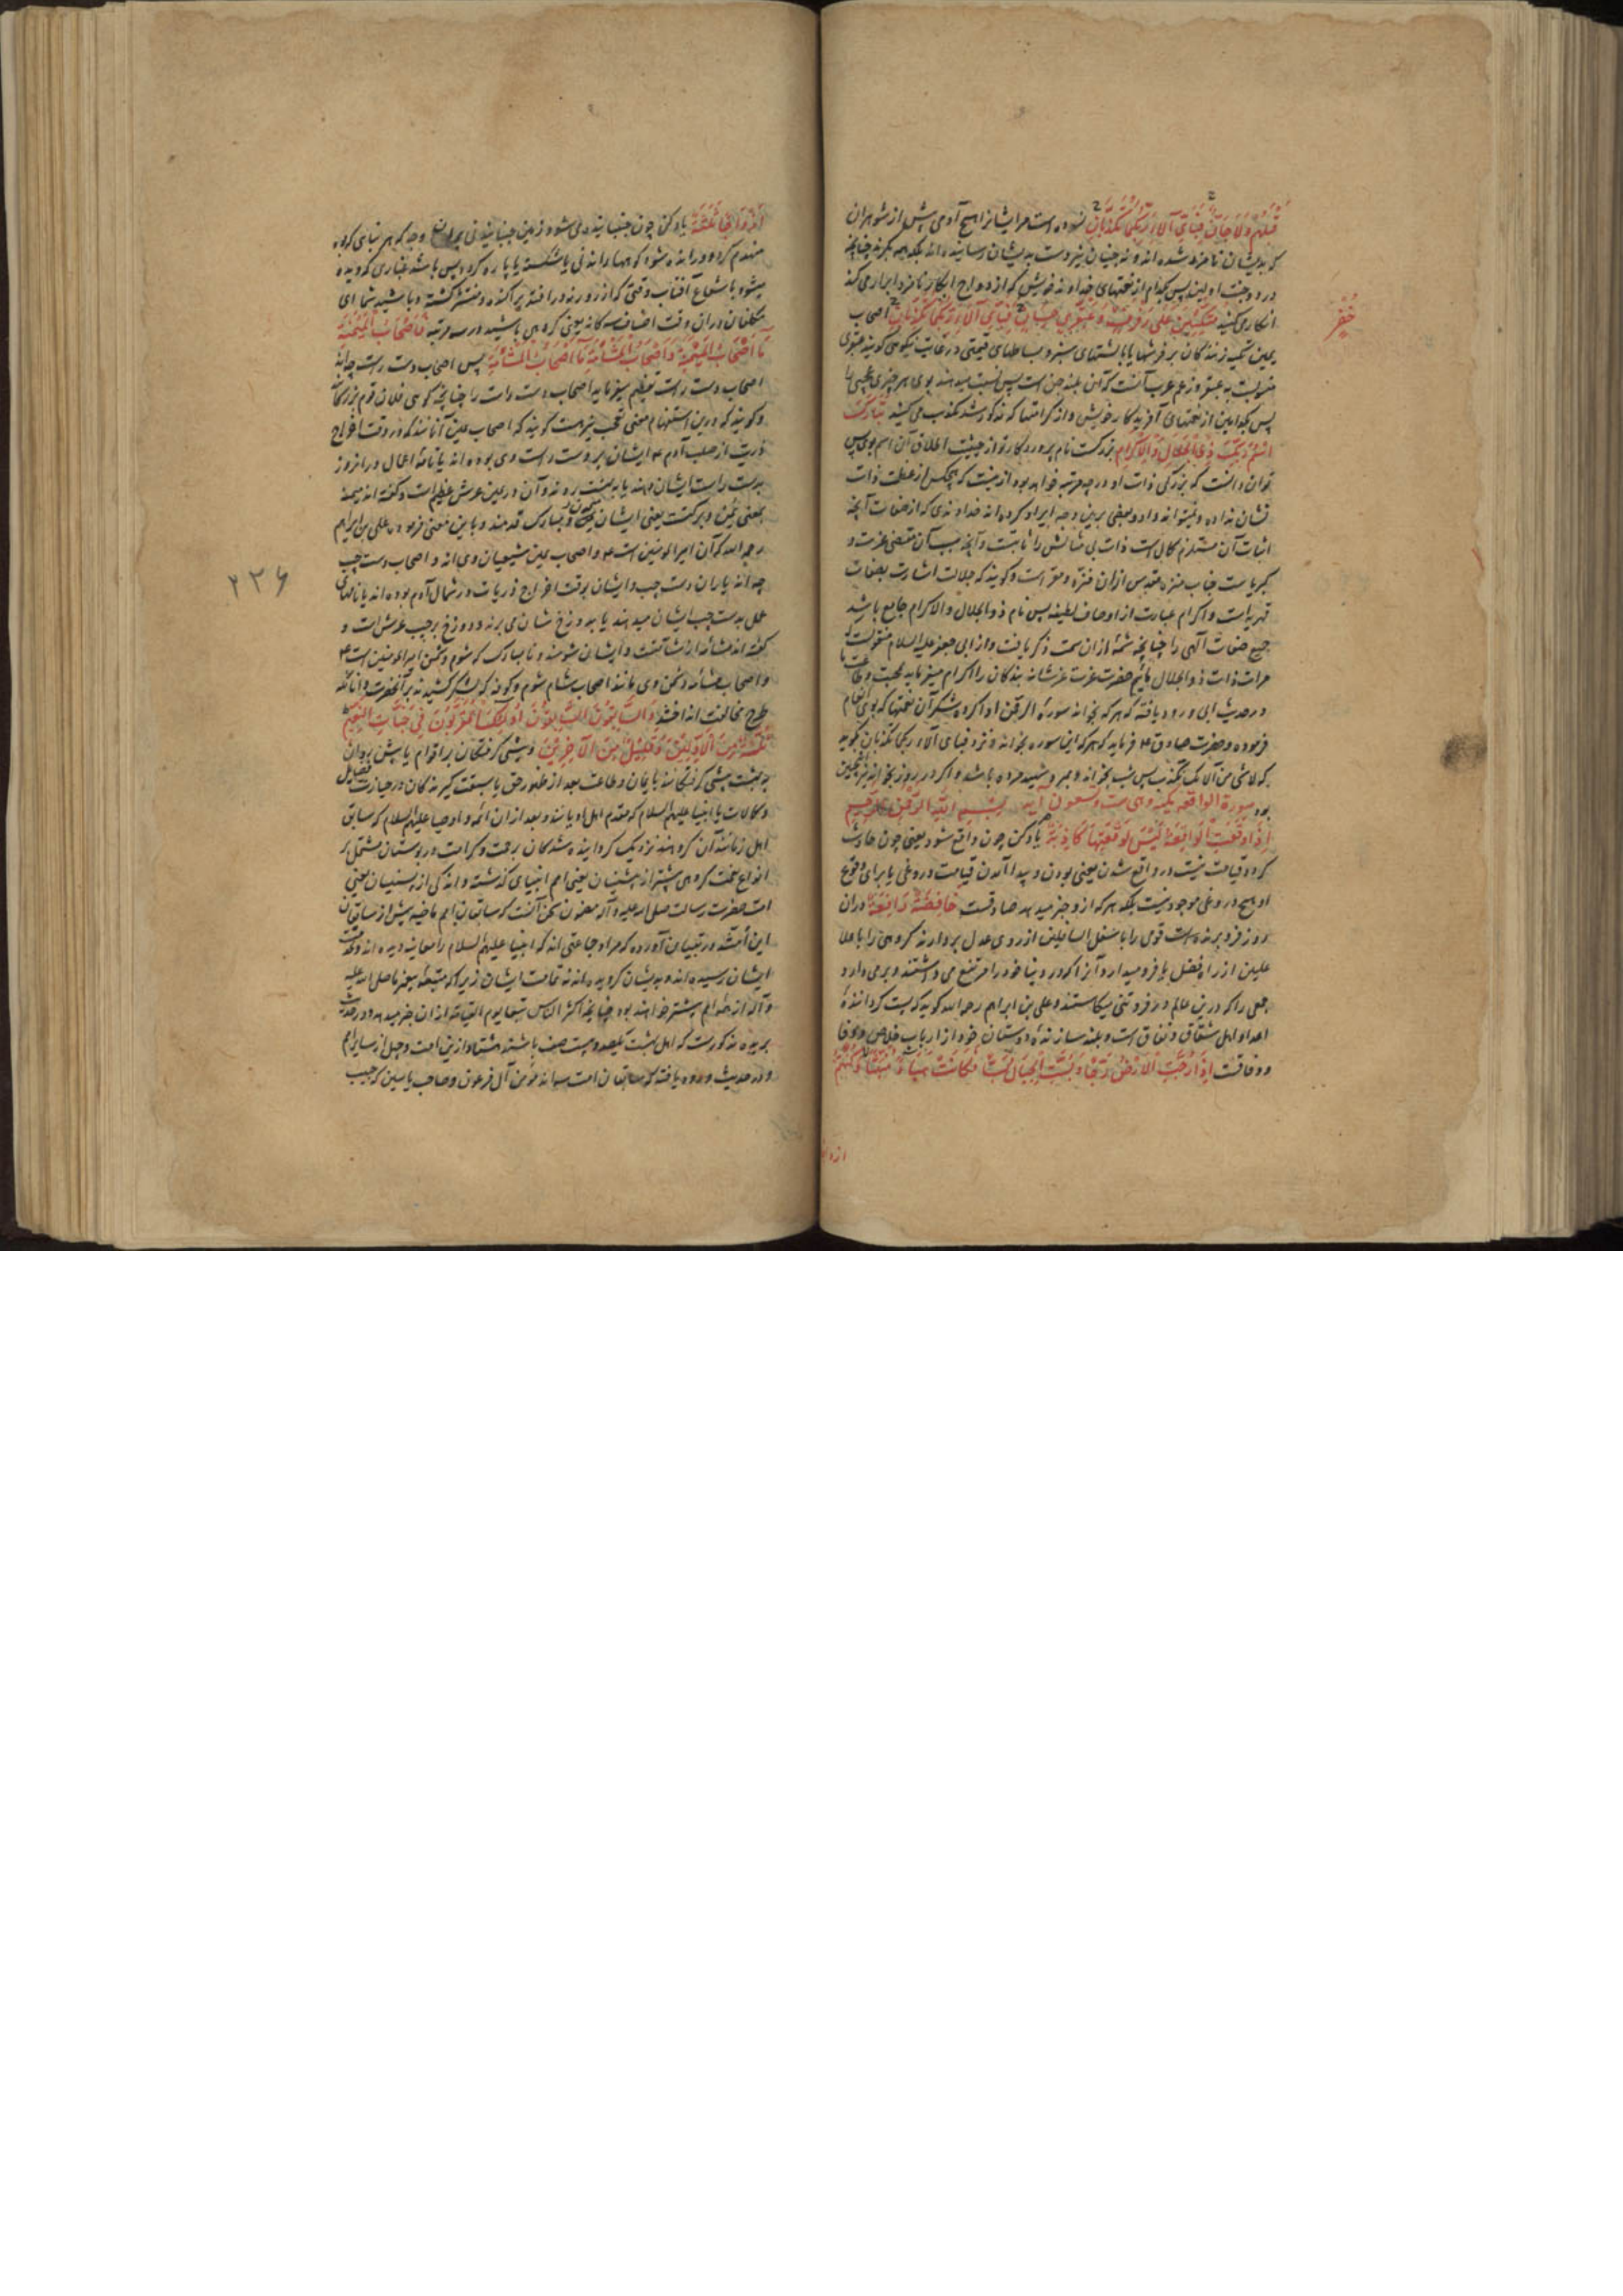 قَبْلَهُمْ وَلَا جَانٌّ فَبِأَيِّ آلَاءِ رَبِّكُمَا تُكَذِّبَانِ نسوده است مرایشانرا هیچ آدمی پیش از شوهران
که بدیشان نامزد شده اند و نه جنیان نیز دست بدیشان رسانیده اند بلکه همه بکرند چنانچه
در دو جنت اولیند پس بکدام از نعمتهای خداوند خویش که ازدواج ابکار نامزد ابرار می کند
انکار می کنید مُتَّكِئِينَ عَلَى رَفْرَفٍ خُضْرٍ وَعَبْقَرِيٍّ حِسَانٍ فَبِأَيِّ آلَاءِ رَبِّكُمَا تُكَذِّبَانِ اصحاب
خُضْرٍ
یمین تکیه زنندگان بر فرشها یا بالشتهای سبز و بساطهای قیمتی در غایت نیکویی کویند عبقری
منسوبست به عبقر و زعم عرب آنست که آن بلند جن است پس نسبت میدهند بوی هر چیزی عجیب را
پس بکدامین از نعمتهای آفریدکار خویش و از کرامتها که مذکور شد تکذیب می کنید تَبَارَكَ
اسْمُ رَبِّكَ ذِي الْجَلَالِ وَالْإِكْرَامِ بزرکست نام پروردکار تو از حیثیت اطلاق آن اسم بوی پس
توان دانست که بزرکی ذات او در چه مرتبه خواهد بود ازینست که هیچکس از عظمت ذات
نشان نداده و نمیتواند داد و بعضی برین وجه ایراد کرده اند خداوندی که از صفات آنچه
اثبات آن مستلزم کمال است ذات بی مثالش را ثابت و آنچه سلب آن مقتضی عزت و
کبریاست جناب منزه مقدس ازان منزه و معراست و کویند که جلالت اشارت بصفات
قهریه است و اکرام عبارت از اوصاف لطیفه پس نام ذو الجلال والاکرام جامع باشد
جمیع صفات آلهی را چنانچه شمه ازان سمت ذکر یافت و از ابی جعفر علیه السلام منقولست که
مراد ذات ذو الجلال مائیم حضرت عزت عز شانه بندکان را اکرام میفرماید بمحبت و طاعت ما
و در حدیث ابی ورود یافته که هر که بخواند سوره الرحمن ادا کرده شکر آن نعمتها که بوی انعام
فرموده و حضرت صادق ع فرماید که هر که این سوره بخواند و نزد فبای آلاء ربکما تکذبان بکوید
که لا بشی من آلائک رب اکذب پس شب بخواند و بمیرد شهید مرده باشد و اکر در روز بخواند نیز همچنین
بود سورة الواقعه مکیة وهی ست وتسعون آیه بسم الله الرحمن الرحیم
إِذَا وَقَعَتِ الْوَاقِعَةُ لَيْسَ لِوَقْعَتِهَا كَاذِبَةٌ یاد کن چون واقع شود یعنی چون حادث
کردد قیامت نیست در واقع شدن یعنی بودن و پیدا آمدن قیامت دروغی یا برای وقوع
او هیچ دروغی موجود نیست بلکه هر که ازو خبر میدهد صادقست خَافِضَةٌ رَافِعَةٌ دران
روز فرو برنده است قومی را باسفل السافلین از روی عدل بردارنده کروهی را باعلا
علیین از راه فضل یا فرو میدارد آنرا که در دنیا خود را مرتفع می داشتند و برمی دارد
جمعی را که درین عالم در فروتنی میکاستند و علی بن ابراهیم رحمه الله کوید که پست کردانندهٔ
اعدا و اهل شقاق و نفاق است و بلند سازندهٔ دوستان خود از ارباب خلاص و وفا
و وفاقت إِذَا رُجَّتِ الْأَرْضُ رَجًّا وَبُسَّتِ الْجِبَالُ بَسًّا فَكَانَتْ هَبَاءً مُنْبَثًّا وَكُنْتُمْ
أَزْوَاجًا ثَلَاثَةً یاد کن چون جنبانیده می شود زمین جنبانیدنی بران وجه که هر بنای که بود
منهدم کردد و رانده شود کوهها راندنی یا شکسته یا پاره کردد پس باشد غباری که دیده
میشود باشعاع آفتاب وقتی که از روزنه در افتد پراکنده و منتشر کشته و باشید شما ای
مکلفان دران وقت اصناف سه کانه یعنی کروهی باشید در سه مرتبه فَأَصْحَابُ الْمَيْمَنَةِ
مَا أَصْحَابُ الْمَيْمَنَةِ وَأَصْحَابُ الْمَشْأَمَةِ مَا أَصْحَابُ الْمَشْأَمَةِ پس اصحاب دست راست چه اند
اصحاب دست راست تعظیم میفرماید اصحاب دست راست را چنانچه کویی فلان قوم بزرکانند
و کویند که درین استفهام معنی تعجب نیز هست کویند که اصحاب یمین آنانند که در وقت اخراج
ذریت از صلب آدم ع ایشان بر دست راست وی بوده اند یا نامهٔ اعمال در انروز
بدست راست ایشان دهند یا به بهشت روند و آن در یمین عرش عظیم است و کفته اند میمنه
بمعنی یمن و برکتست یعنی ایشان میمون و مبارک قدمند و باین معنی فرموده علی بن ابراهیم
رحمه الله که آن امیر المومنین است ع و اصحاب یمین شیعیان وی اند و اصحاب دست چپ
۲۲۶
چه اند یاران دست چپ و ایشان بوقت اخراج ذریات در شمال آدم بوده اند یا نامهای
عمل بدست چپ ایشان میدهند یا بدوزخ شان می برند و دوزخ بر چپ عرش است و
کفته اند مشأمه از شآمتست و ایشان شومند و نامبارک کوشوم دشمن امیر المومنین است ع
و اصحاب مشأمه دشمن وی مانند اصحاب شام شوم و کوفه که لشکر کشیدند بر آنحضرت و آنانکه
طرح مخالفت انداختند وَالسَّابِقُونَ السَّابِقُونَ أُولَئِكَ الْمُقَرَّبُونَ فِي جَنَّاتِ النَّعِيمِ
ثُلَّةٌ مِنَ الْأَوَّلِينَ وَقَلِيلٌ مِنَ الْآخِرِينَ و پیشی کرفتکان بر اقوام یا پیش روان
به بهشت پیشی کرفتکانند بایمان و طاعت بعد از ظهور حق یا سبقت کیرندکان در حیازت فضایل
و کمالات یا انبیا علیهم السلام که مقدم اهل ادیانند و بعد ازان ائمه و اوصیا علیهم السلام که سابق
اهل زمانند آن کروهند نزدیک کردانیده شدکان برحمت و کرامت و در بوستان مشتمل بر
انواع نعمت کروهی بیشتر از پیشینیان یعنی امم انبیای کذشته و اندکی از پسینیان یعنی
امت حضرت رسالت صلی الله علیه و آله مضمون سخن آنست که سابقان امم ماضیه بیش از سابقان
این امتند و در تبیان آورده که مراد جماعتی اند که انبیا علیهم السلام را معاینه دیده اند و بخدمت
ایشان رسیده اند و بدیشان کرویده اند نه تمامت ایشان زیرا که متبعهٔ پیغمبر ما صلی الله علیه
و آله از همه امم بیشتر خواهند بود چنانچه اکثر الناس تبعا یوم القیامة ازان خبر میدهد و در حدیث
بریده مذکورست که اهل بهشت یکصد و بیست صف باشند هشتاد ازین امت و چهل از سایر امم
و در حدیث ورود یافته که سابقان امت سه اند مومن آل فرعون و صاحب یاسین که حبیب